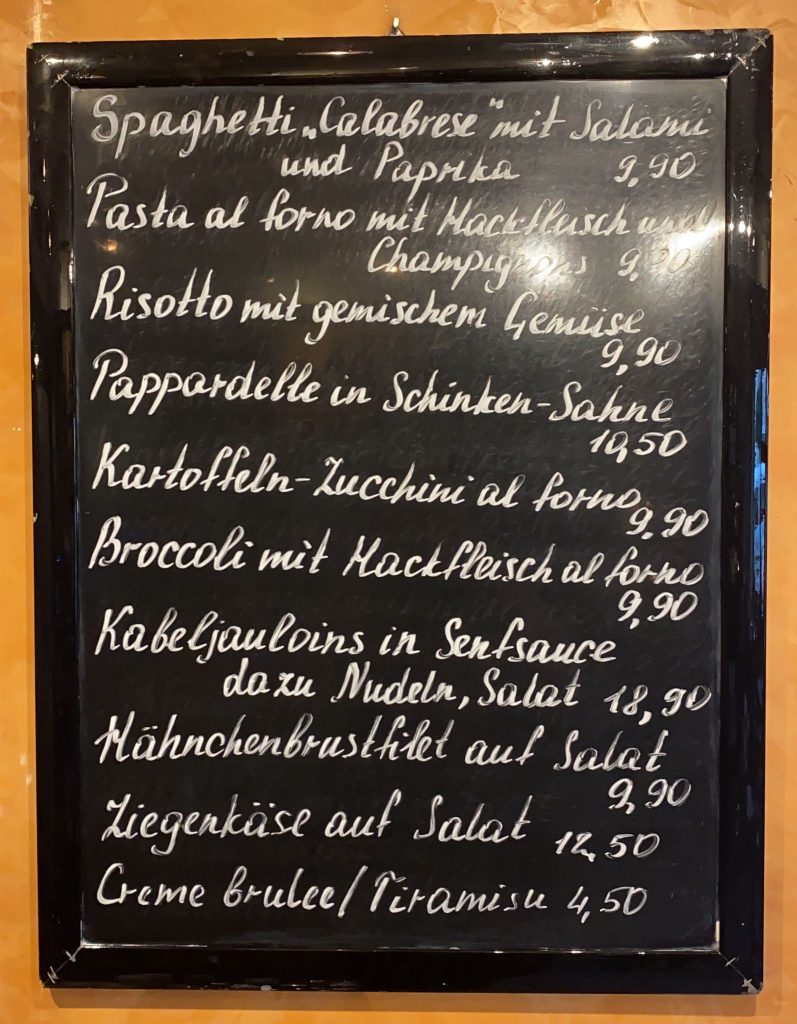 Spaghetti „Calabrese" mit Salami
und Paprika 9,90
Pasta al forno mit Hackfleisch und
Champignons 9,90
Risotto mit gemischem Gemüse
9,90
Pappardelle in Schinken-Sahne
10,50
Kartoffeln-Zucchini al forno
9.90
Broccoli mit Hackfleisch al forno
9,90
Kabeljauloins in Senfsauce
dazu Nudeln, Salat 18,90
Hähnchenbrustfilet auf Salat
9,90
Ziegenkäse auf Salat 12,50
Creme brulee/Tiramisu 4,50